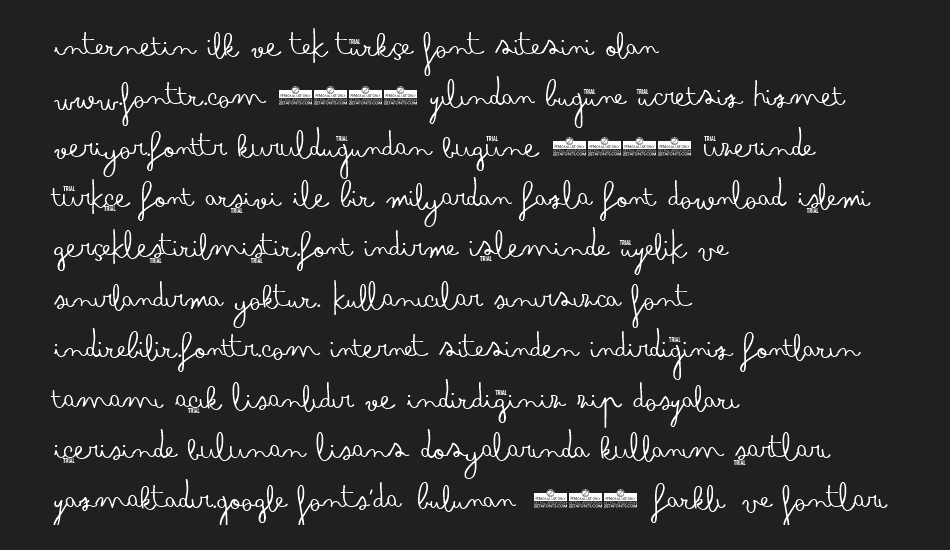 ınternetin ilk ve tek türkçe font sitesini olan
www.fonttr.com yılından bugüne ücretsiz hizmet
veriyor.fonttr kurulduğundan bugüne üzerinde
türkçe font arşivi ile bir milyardan fazla font download işlemi
gerçekleştirilmiştir.font indirme işleminde üyelik ve
sınırlandırma yoktur. kullanıcılar sınırsızca font
indirebilir.fonttr.com internet sitesinden indirdiğiniz fontların
tamamı açık lisanlıdır ve indirdiginiz zip dosyaları
içerisinde bulunan lisans dosyalarında kullanım şartları
yazmaktadır.google fonts'da bulunan farklı ve fontları